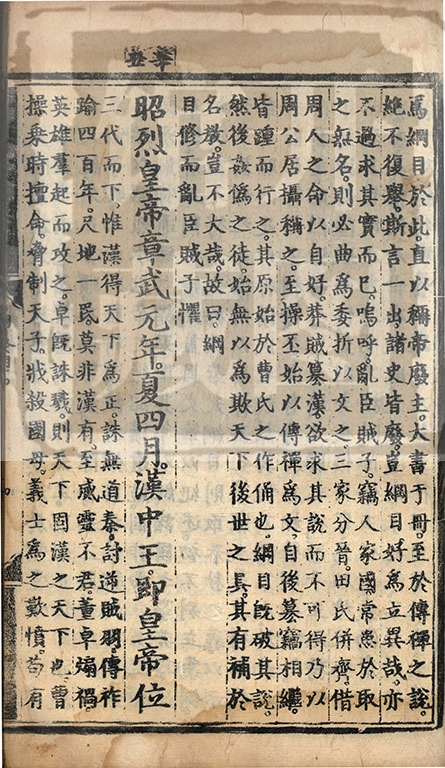 辛丑
爲綱目於此。直以稱帝廢主。大書于冊。至於傳禪之說。
絕不復舉。斯言一出。諸史皆廢。豈綱目好爲立異哉。亦
不過求其實而已。嗚呼。亂臣賊子。竊人家國。常患於取
之無名。則必曲爲委折以文之。三家分晉。田氏併齊。借
周人之命以自好。莽賊篡漢。欲求其說而不可得。乃以
周公居攝稱之。至操丕始以傳禪爲文。自後篡竊相繼。
皆踵而行之。其原始於曹氏之作俑也。綱目旣破其說。
然後姦僞之徒。始無以爲欺天下後世之具。其有補於
名敎。豈不大哉。故曰。綱
目修而亂臣賊子懼
昭烈皇帝章武元年。夏四月。漢中王卽皇帝位
三代而下。惟漢得天下爲正。誅無道秦。討逆賊羽。傳祚
踰四百年。尺地一民。莫非漢有。至威靈不君。董卓煽禍。
英雄羣起而攻之。卓旣誅戮。則天下固漢之天下也。曹
操乘時擅命。脅制天子。戕殺國母。義士爲之歎憤。苟有